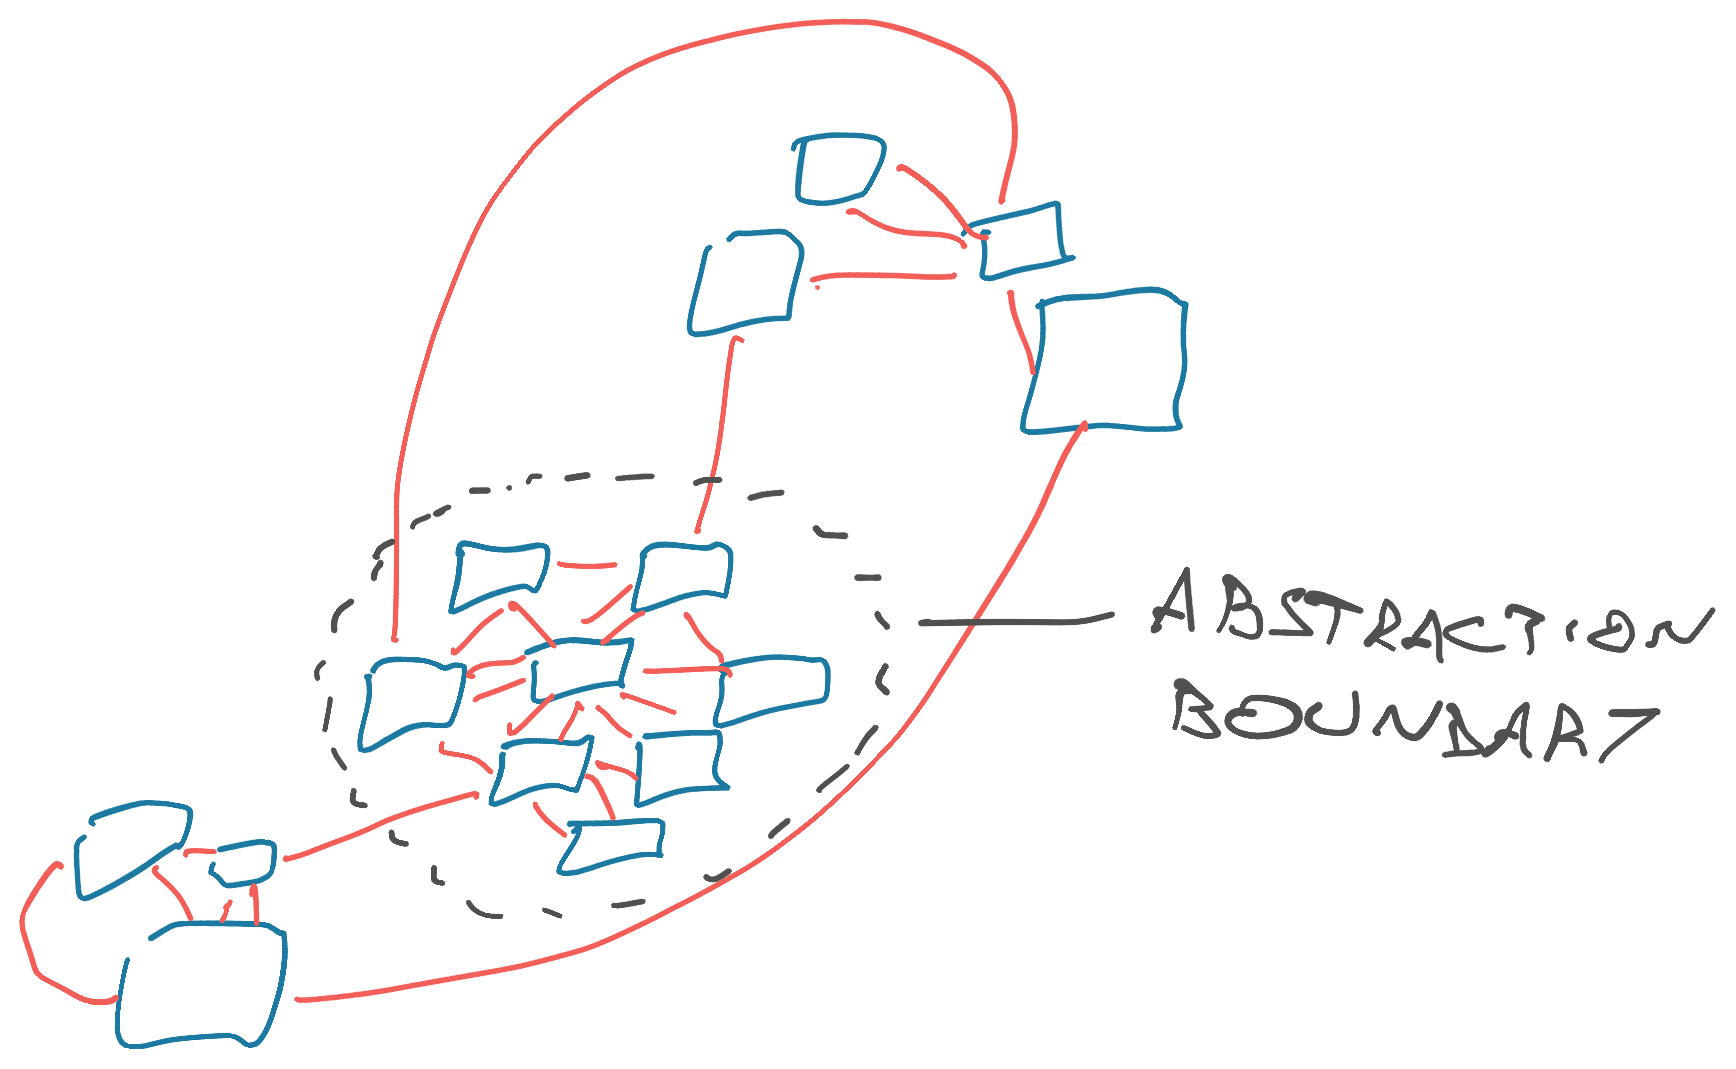 ABSTRACTION
BOUNDARY